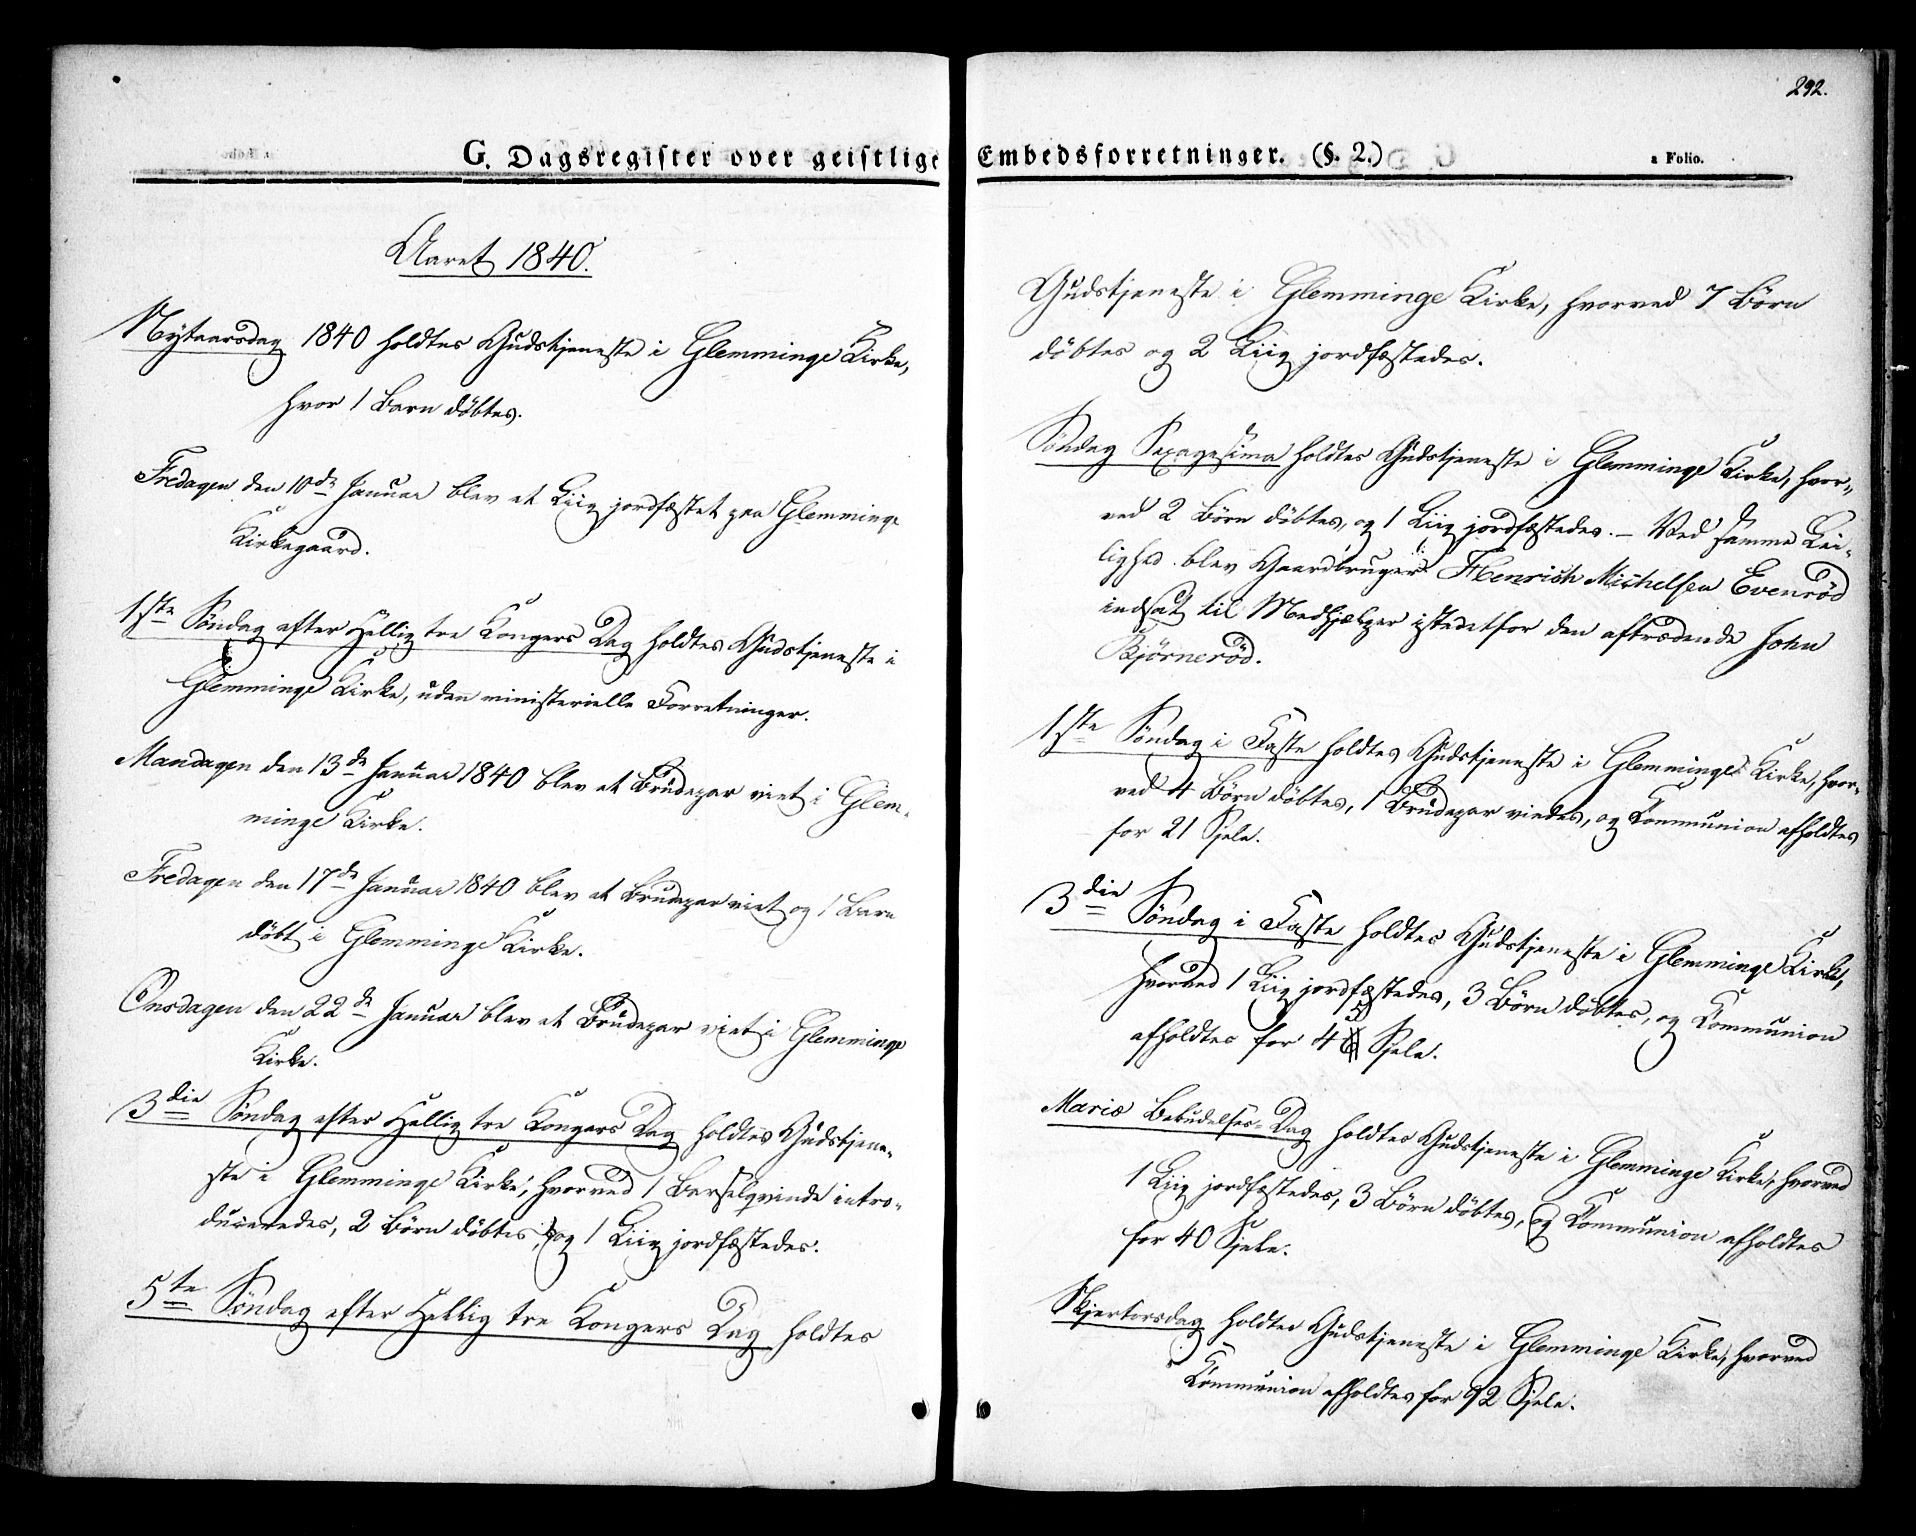 292.
G. Dagsregister over geistlige Embedsforretninger. (§. 2.)
a Folio.
Aaret 1840.
Nytaarsdag 1840 holdtes Gudstjeneste i Glemminge Kirke,
hvor 1 Barn döbtes.
Fredagen den 10de Januar blev et Liig jordfæstet paa Glemminge
Kirkegaard.
1ste Söndag efter Hellig tre Kongers Dag holdtes Gudstjeneste i
Glemminge Kirke, uden ministerielle Forretninger.
Mandagen den 13de Januar 1840 blev et Brudepar viet i Glem-
minge Kirke.
Fredagen den 17de Januar 1840 blev et Brudepar viet og 1 Barn
döbt i Glemminge Kirke.
Onsdagen den 22de Januar blev et Brudepar viet i Glemminge
Kirke.
3die Söndag efter Hellig tre Kongers Dag holdtes Gudstjene-
ste i Glemminge Kirke, hvorved 1 Barselqvinde intro-
duceredes, 2 Börn döbtes, og 1 Liig jordfæstedes.
5te Söndag efter Hellig tre Kongers Dag holdtes
Gudstjeneste i Glemminge Kirke, hvorved 7 Börn
döbtes og 2 Liig jordfæstedes.
Söndag Sexagesima holdtes Gudstjeneste i Glemminge Kirke, hvor-
ved 2 Börn döbtes, og 1 Liig jordfæstedes. – Ved samme Lei-
lighed blev Gaardbruger Henrich Michelsen Evenröd
indsat til Medhjælper istedetfor den aftrædende John
Björneröd.
1ste Söndag i Faste holdtes Gudstjeneste i Glemminge Kirke, hvor-
ved 4 Börn döbtes, 1 Brudepar viedes, og Communion afholdtes
for 21 Sjele.
3die Söndag i Faste holdtes Gudstjeneste i Glemminge Kirke,
hvorved 1 Liig jordfæstedes, 3 Börn döbtes, og Communion
afholdtes for 45 Sjele.
Mariæ Bebudelses-Dag holdtes Gudstjeneste i Glemminge Kirke, hvorved
1 Liig jordfæstedes, 3 Börn döbtes, og Communion afholdtes
for 40 Sjele.
Skjertorsdag holdtes Gudstjeneste i Glemminge Kirke, hvorved
Communion afholdtes for 92 Sjele.